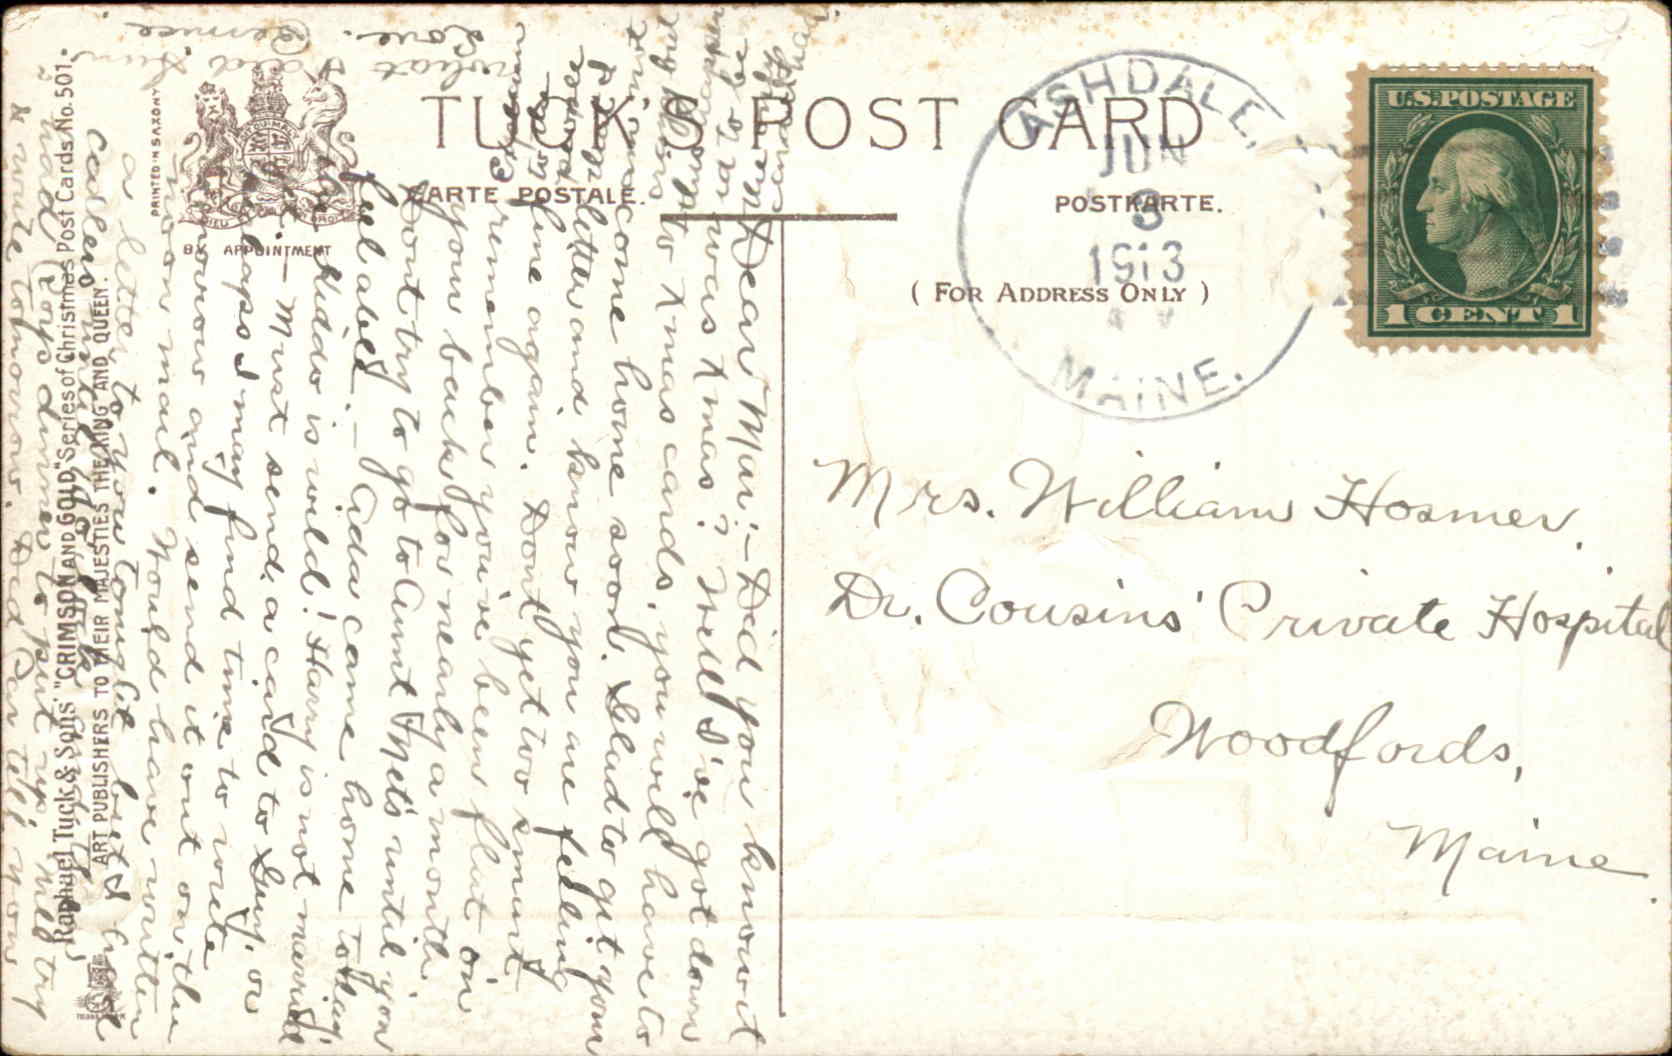 TUCK'S POST CARD
CARTE POSTALE.
POSTKARTE.
( FOR ADDRESS ONLY )
PRINTED IN SAXONY
BY APPOINTMENT
ASHDALE,
JUN
3
1913
MAINE.
U.S.POSTAGE
1 CENT 1
Mrs. William Hosmer,
Dr. Cousins' Private Hospital
Woodfords,
Maine.
Dear Mar:– Did you know it
was Xmas? Well I've got down
to Xmas cards, you will have to
come home soon. Glad to get your
letter and know you are feeling
fine again. Dont get too smart
remember you've been flat on
your back for nearly a month
Dont try to go to Aunt Net's until you
feel able. – Ada came home today
the Kiddo is wild! Harry is not married
– Must send a card to Guy, or
perhaps I may find time to write
and send it out on the
noon mail. Would have written
a letter to you tonight but I had
Raphael Tuck & Sons' "CRIMSON AND GOLD" Series of Christmas Post Cards No. 501.
ART PUBLISHERS TO THEIR MAJESTIES THE KING AND QUEEN.
dinner to put up. Will try
& write tomorrow. Did Par tell you
what
Love.
Bernice